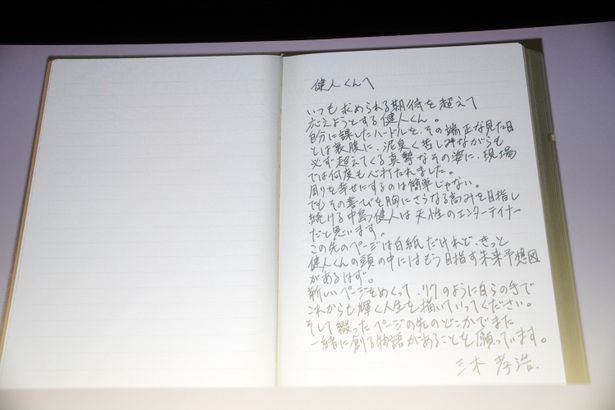 健人くんへ
いつも求められる期待を超えて
応えようとする健人くん。
自分に課したハードルを、その端正な見た目
とは裏腹に、泥臭く苦しみながらも
必ず超えてくる真摯なその姿に、現場
では何度も心打たれました。
周りを幸せにするのは簡単じゃない。
でもその喜びを胸にさらなる高みを目指し
続ける中島健人は天性のエンターテイナー
だと思います。
この先のページは白紙だけれど、きっと
健人くんの頭の中にはもう目指す未来予想図
があるはず。
新しいページをめくって、リクのように自らの手で
これからも輝く人生を描いていってください。
そして綴ったページの先のどこかでまた
一緒に創る物語があることを願っています。
三木 孝浩.